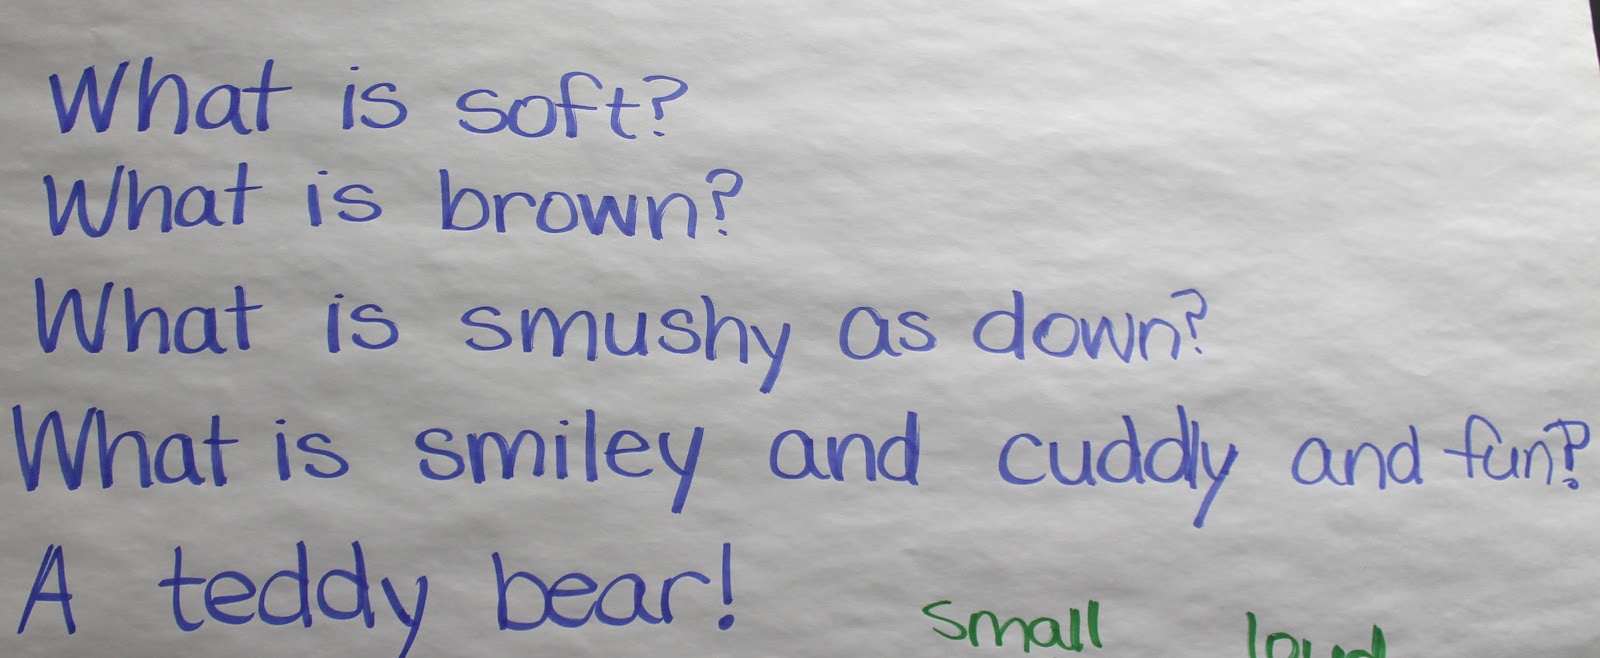 What is soft?
What is brown?
What is smushy as down?
What is smiley and cuddly and fun?
A teddy bear!
small loud